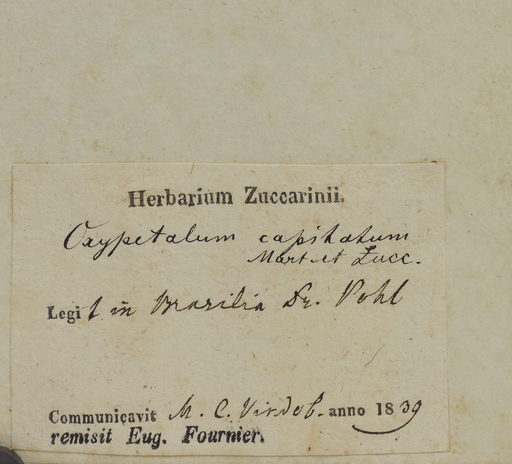 Herbarium Zuccarinii.
Oxypetalum capitatum
Mart et Zucc.
Legit in Brasilia Dr. Pohl
Communicavit M. C. Vindob. anno 1839
remisit Eug. Fournier.